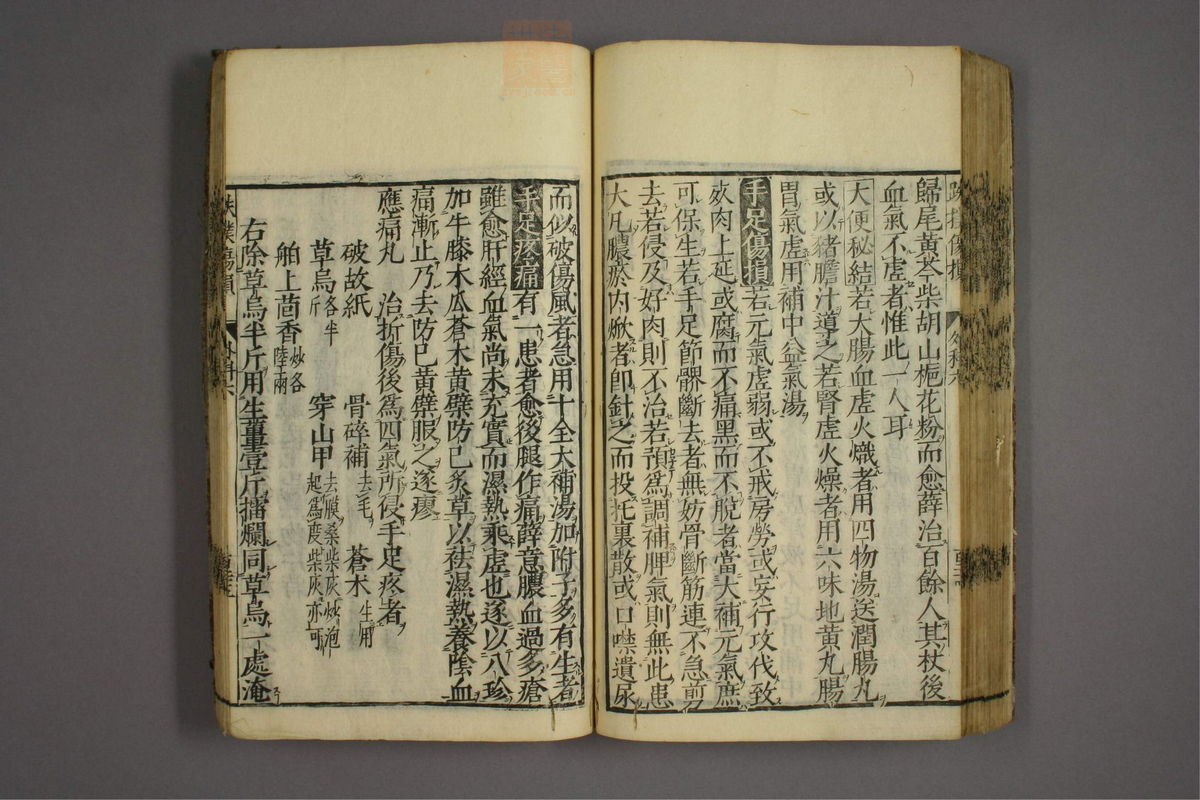 歸尾黃芩柴胡山梔花粉而愈薛治百餘人其杖後
血氣不虛者惟此一人耳
大便秘結若大腸血虛火熾者用四物湯送潤腸丸
或以豬膽汁導之若腎虛火燥者用六味地黃丸腸
胃氣虛用補中益氣湯
手足傷損若元氣虛弱或不戒房勞或妄行攻伐致
死肉上延或腐而不痛黑而不脫者當大補元氣庶
可保生若手足節髎斷去者無妨骨斷筋連不急剪
去若侵及好肉則不治若預為調補脾氣則無此患
大凡膿瘀內焮者卽針之而投托裏散或口噤遺尿
而似破傷風者急用十全大補湯加附子多有生者
手足疼痛有一患者愈後腿作痛薛意膿血過多瘡
雖愈肝經血氣尚未充實而濕熱乘虛也遂以八珍
加牛膝木瓜蒼朮黃蘗防己炙草以祛濕熱養陰血
痛漸止乃去防已黃蘗服之遂瘳
應痛丸　治折傷後為四氣所侵手足疼者
破故紙　骨碎補去毛　蒼朮生用
草烏各半斤　穿山甲去膜桑柴灰炒泡起為度柴灰亦可
舶上茴香炒各陸兩
右除草烏半斤用生薑壹斤擂爛同草烏一處淹
跌撲傷損
外科六